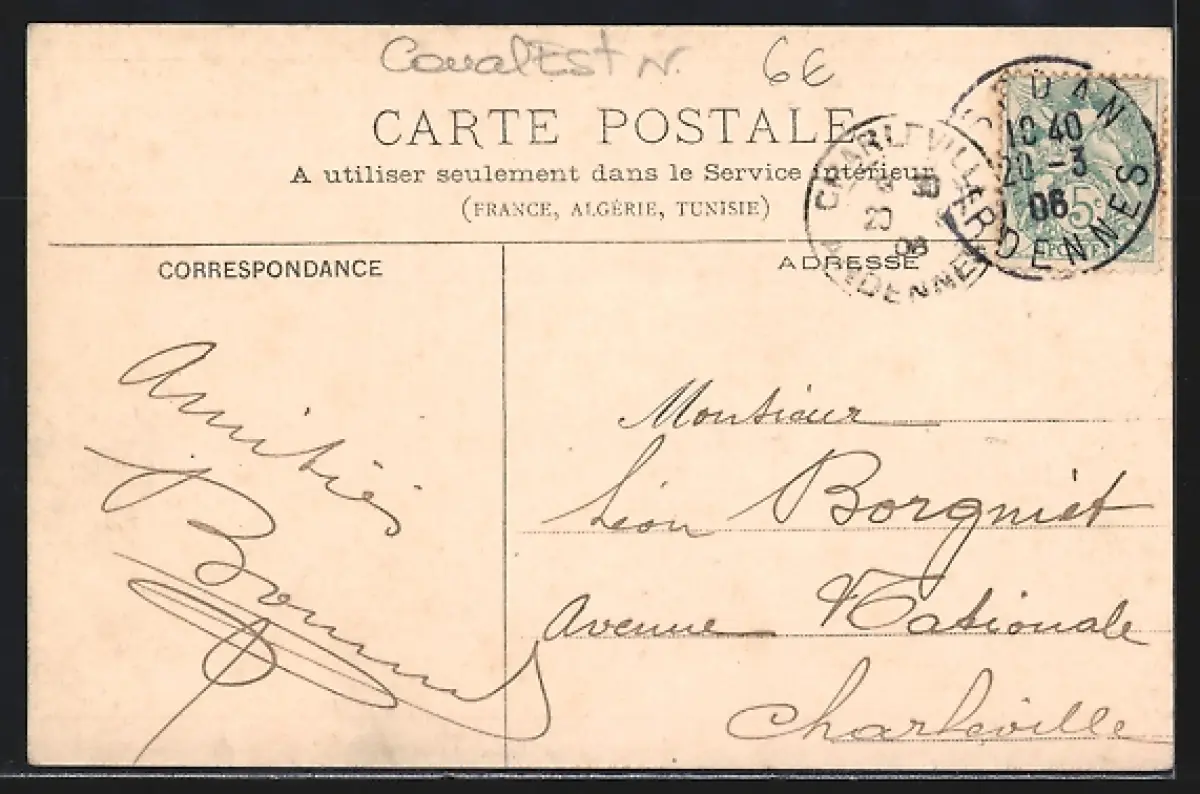 Canal Est N. 6€
CARTE POSTALE
A utiliser seulement dans le Service intérieur
(FRANCE, ALGÉRIE, TUNISIE)
SEDAN
10 40
20 -3
06
ARDENNES
5c
POSTES
CHARLEVILLE
30
20
06
ARDENNES
CORRESPONDANCE
Amitiés
ADRESSE
Monsieur
Léon Borgniet
Avenue Nationale
Charleville